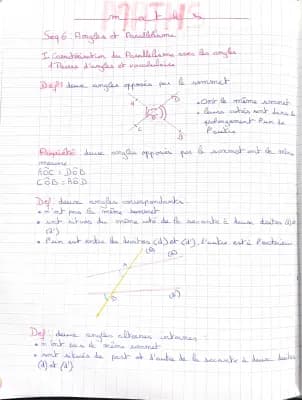 maths
Seq 6. Angles et Parallélisme
I. Caractérisation du Parallélisme avec les angles
1 Paires d'angles et vocabulaire
Def: deux angles opposés par le sommet
• ont le même sommet
• leurs cotés sont dans le
prolongement l'un de
l'autre
A
D
O
C
B
Propriété: deux angles opposés par le sommet ont la même
mesure
AOC = DOB
COB = AOD
Def: deux angles correspondants:
• n'ont pas le même sommet
• sont situés du même coté de la secante à deux droites (d) et
(d')
• l'un est entre les droites (d) et (d'), l'autre est à l'extérieur
(d)
(d')
Def: deux angles alternes internes:
• n'ont pas le même sommet
• sont situés de part et d'autre de la secante à deux droites
(d) et (d')